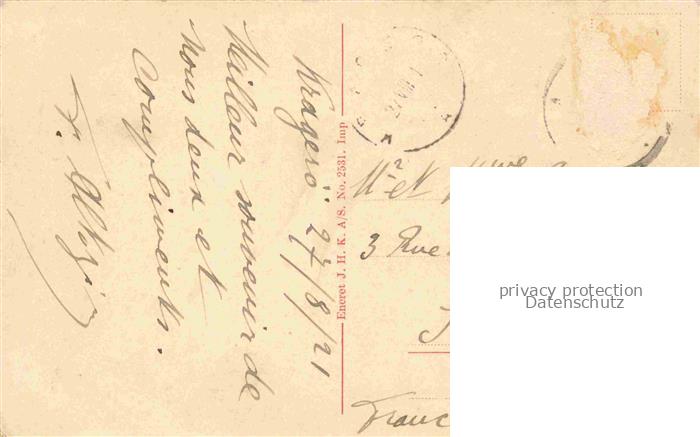 Kragerö 27/8/21
Meilleur souvenir de
nous deux et
compliments.
Eneret J. H. K. A/S. No. 2531. Imp
KRAGERØ
27 VIII
Mr et Mme
3 Rue
Franc
privacy protection
Datenschutz